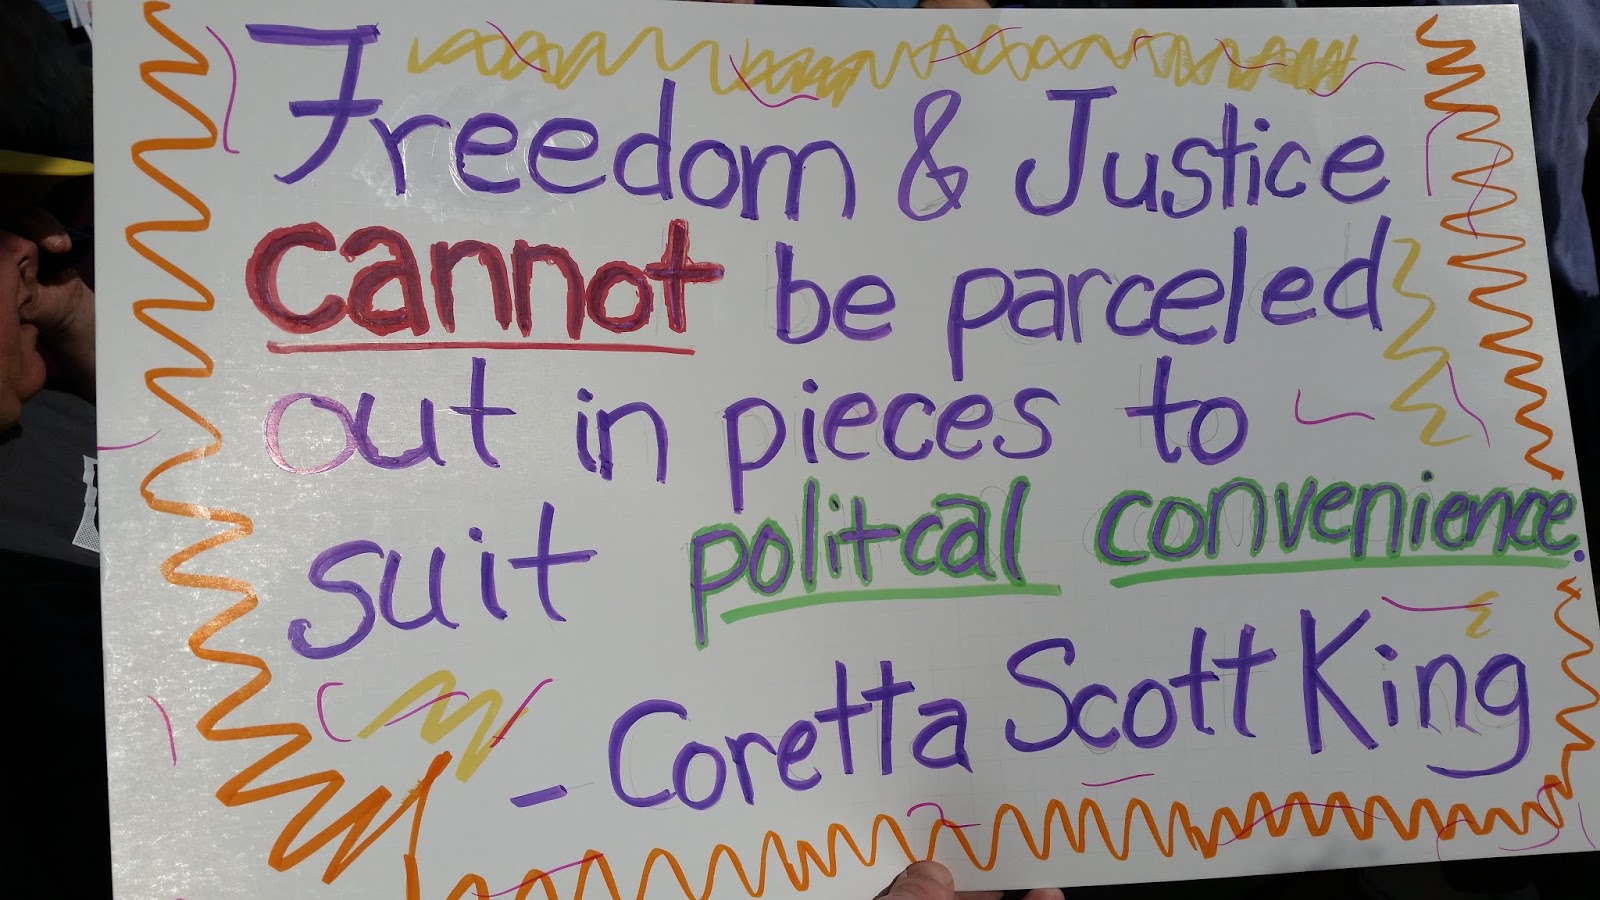 Freedom & Justice
cannot be parceled
out in pieces to
suit politcal convenience.
- Coretta Scott King